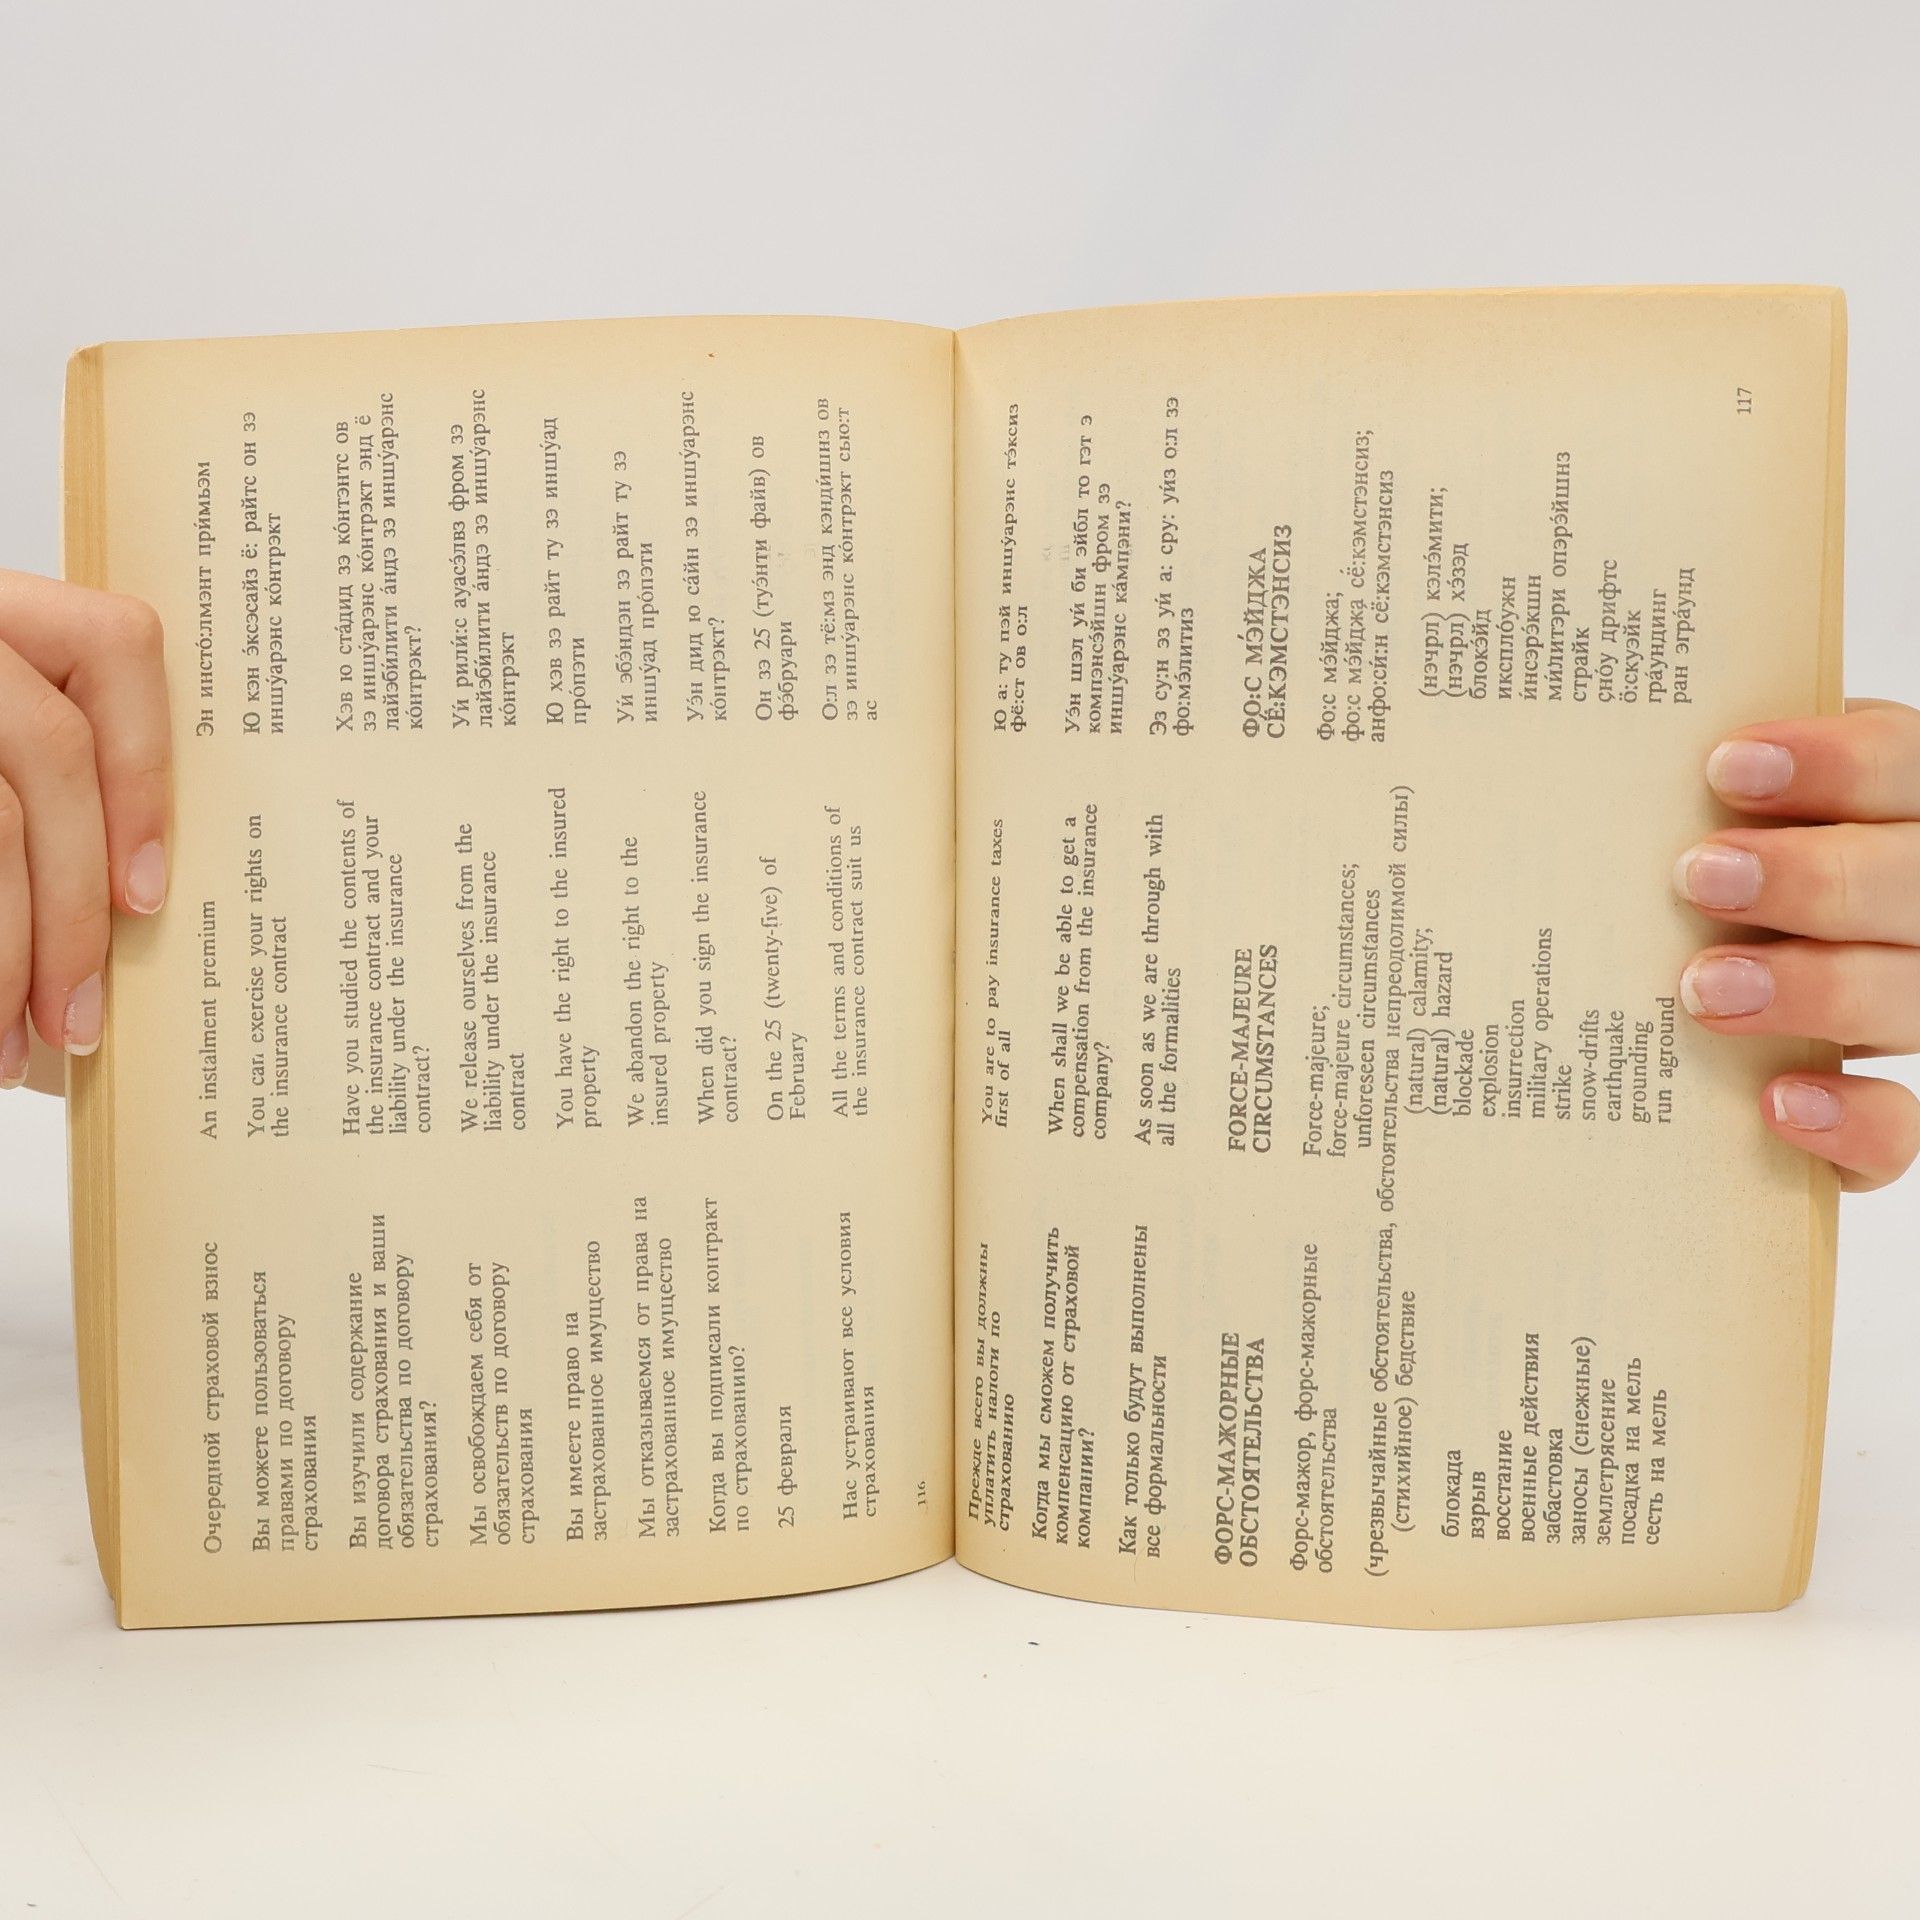 Очередной страховой взнос
An instalment premium
Эн инстó:лмэнт прúмьэм
Вы можете пользоваться
правами по договору
страхования
You can exercise your rights on
the insurance contract
Ю кэн э́ксэсайз ё: райтс он зэ
иншу́арэнс ко́нтрэкт
Вы изучили содержание
договора страхования и ваши
обязательства по договору
страхования?
Have you studied the contents of
the insurance contract and your
liability under the insurance
contract?
Хэв ю ста́дид зэ ко́нтэнтс ов
зэ иншу́арэнс ко́нтрэкт энд ё
лайэби́лити а́ндэ зэ иншу́арэнс
ко́нтрэкт?
Мы освобождаем себя от
обязательств по договору
страхования
We release ourselves from the
liability under the insurance
contract
Уи́ рили́:с ауасэ́лвз фром зэ
лайэби́лити а́ндэ зэ иншу́арэнс
ко́нтрэкт
Вы имеете право на
застрахованное имущество
You have the right to the insured
property
Ю хэв зэ райт ту зэ иншу́ад
про́пэти
Мы отказываемся от права на
застрахованное имущество
We abandon the right to the
insured property
Уи́ эбэ́ндэн зэ райт ту зэ
иншу́ад про́пэти
Когда вы подписали контракт
по страхованию?
When did you sign the insurance
contract?
Уэ́н дид ю са́йн зэ иншу́арэнс
ко́нтрэкт?
25 февраля
On the 25 (twenty-five) of
February
Он зэ 25 (туэ́нти файв) ов
фэ́бруари
Нас устраивают все условия
страхования
All the terms and conditions of
the insurance contract suit us
О:л зэ тё:мз энд кэнди́шнз ов
зэ иншу́арэнс ко́нтрэкт сью:т
ас
116
Прежде всего вы должны
уплатить налоги по
страхованию
You are to pay insurance taxes
first of all
Ю а: ту пэй иншу́арэнс тэ́ксиз
фё:ст ов о:л
Когда мы сможем получить
компенсацию от страховой
компании?
When shall we be able to get a
compensation from the insurance
company?
Уэ́н шэл уи́ би эйбл то гэт э
компэнсэ́йшн фром зэ
иншу́арэнс ка́мпэни?
Как только будут выполнены
все формальности
As soon as we are through with
all the formalities
Эз су:н эз уи́ а: сру: уи́з о:л зэ
фо:мэ́литиз
ФОРС-МАЖОРНЫЕ
ОБСТОЯТЕЛЬСТВА
FORCE-MAJEURE
CIRCUMSTANCES
ФО:С МЭ́ЙДЖА
СЁ:КЭМСТЭНСИЗ
Форс-мажор, форс-мажорные
обстоятельства
Force-majeure;
force-majeure circumstances;
unforeseen circumstances
Фо:с мэ́йджа;
фо:с мэ́йджа сё:кэмстэнсиз;
анфо:си́:н сё:кэмстэнсиз
(чрезвычайные обстоятельства, обстоятельства непреодолимой силы)
(стихийное) бедствие
(natural) calamity;
(natural) hazard
(нэчрл) кэлэ́мити;
(нэчрл) хэ́зэд
блокада
blockade
блокэ́йд
взрыв
explosion
иксплóужн
восстание
insurrection
и́нсэрэ́кшн
военные действия
military operations
ми́литэри опэрэ́йшнз
забастовка
strike
страйк
заносы (снежные)
snow-drifts
сно́у дрифтс
землетрясение
earthquake
ё:скуэйк
посадка на мель
grounding
гра́ундинг
сесть на мель
run aground
ран эгра́унд
117